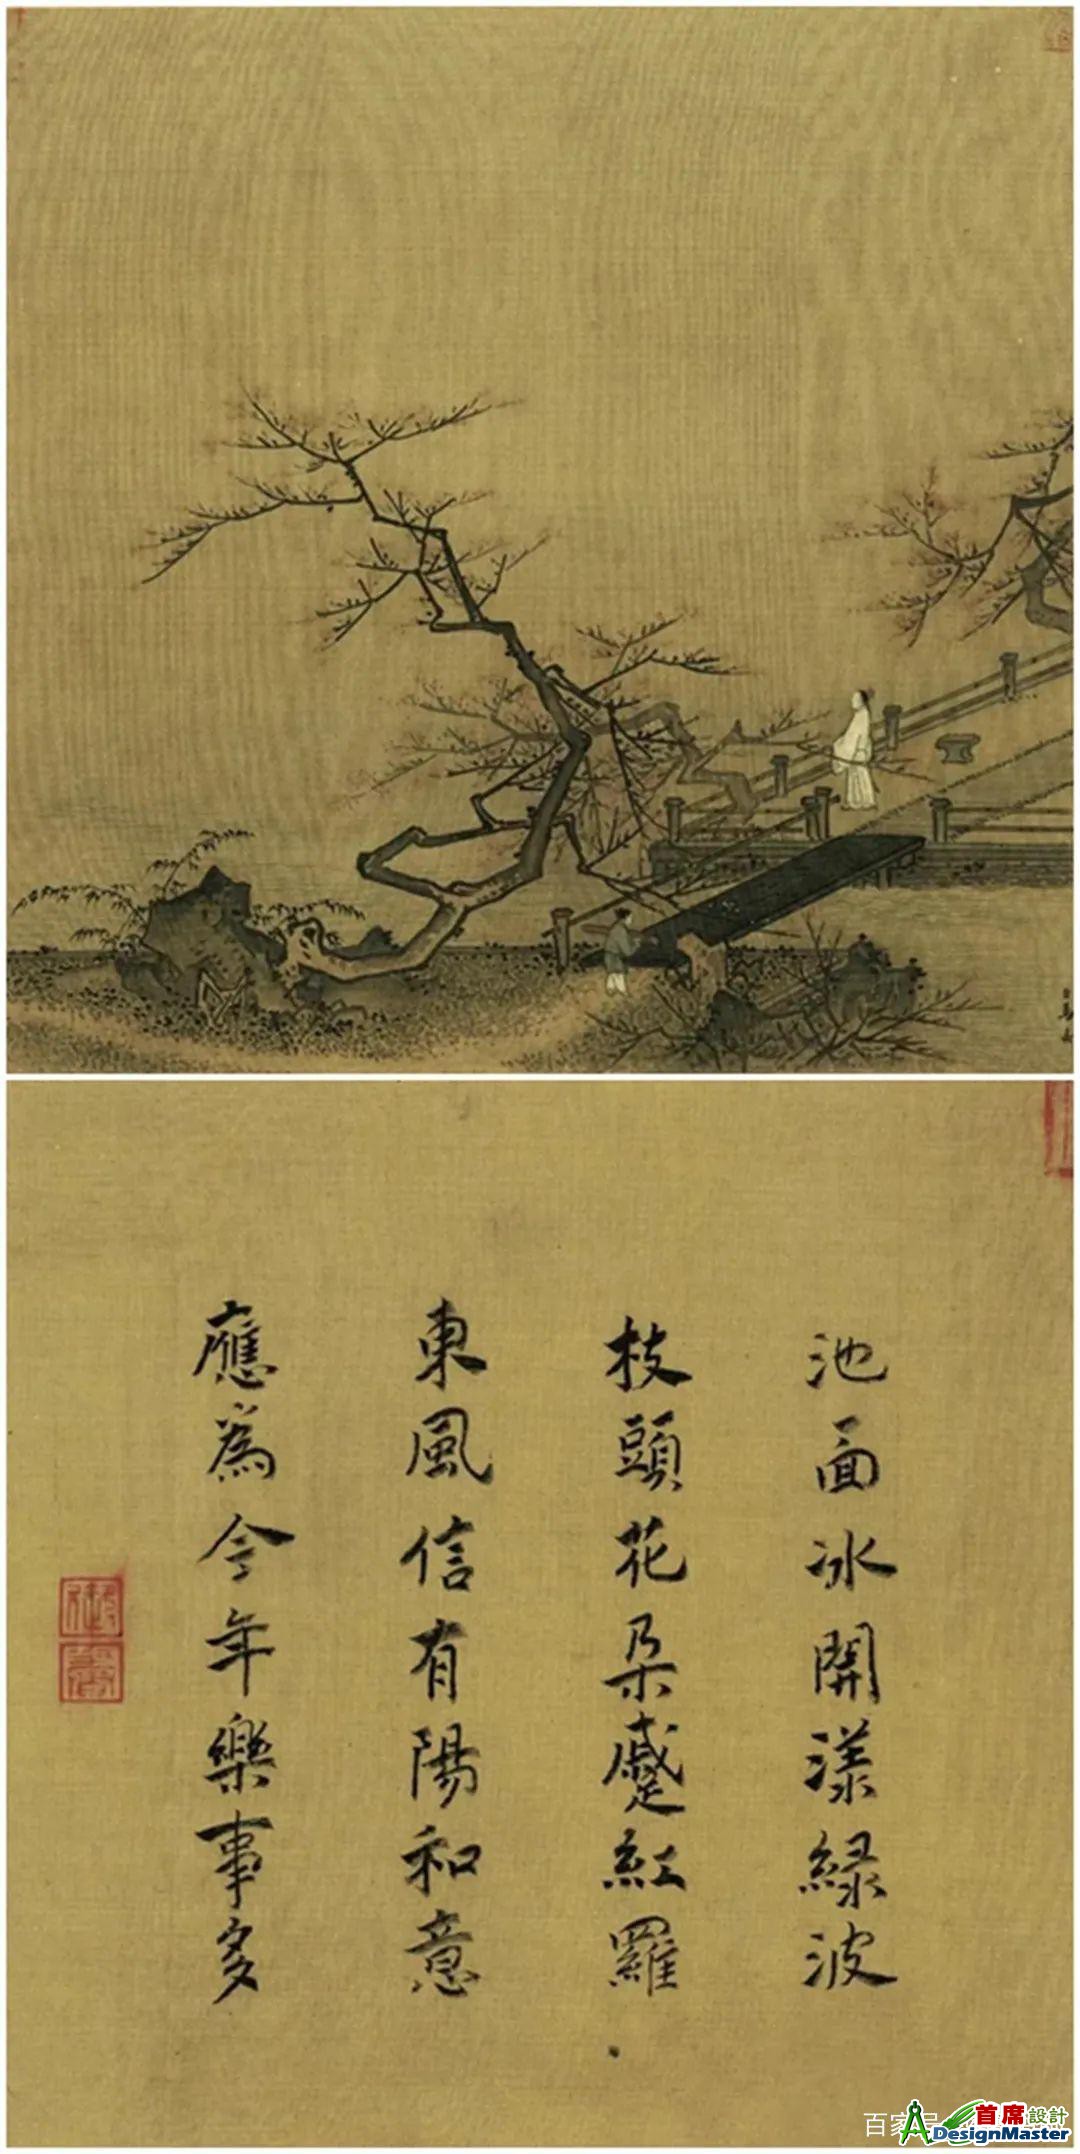 池面冰開漾綠波
枝頭花朵蹙紅羅
東風信有陽和意
應為今年樂事多
首席設計
DesignMaster